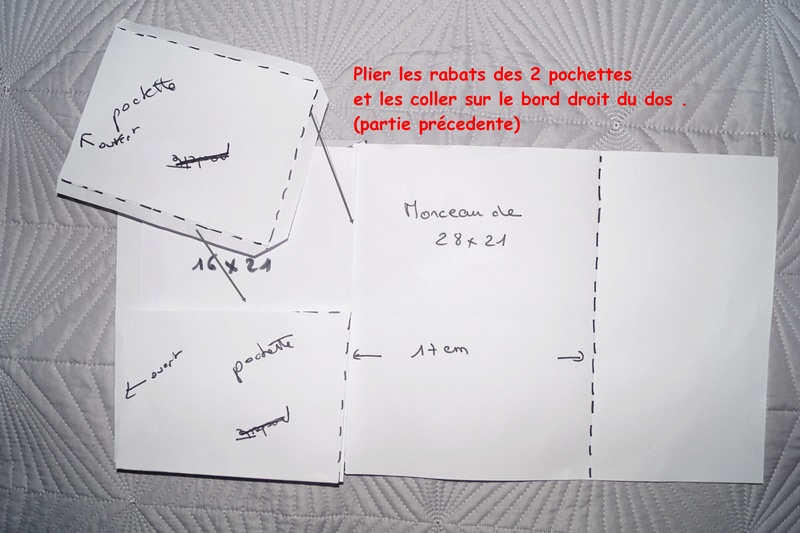 Plier les rabats des 2 pochettes
et les coller sur le bord droit du dos .
(partie précedente)
pochette
ouvert
pochette
Morceau de
28 x 21
16 x 21
17 cm
pochette
ouvert
pochette